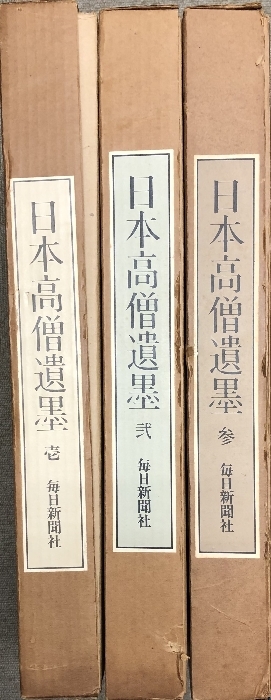 日本高僧遺墨 壱 毎日新聞社
日本高僧遺墨 弐 毎日新聞社
日本高僧遺墨 参 毎日新聞社